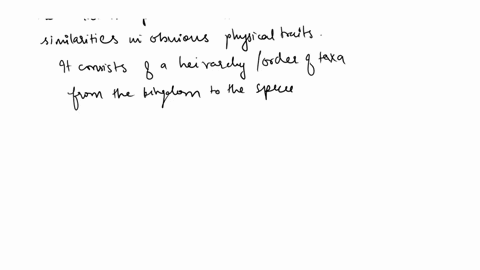 similarities in obvious physical traits.
It consists of a heirarchy/order of taxa
from the kingdom to the specie